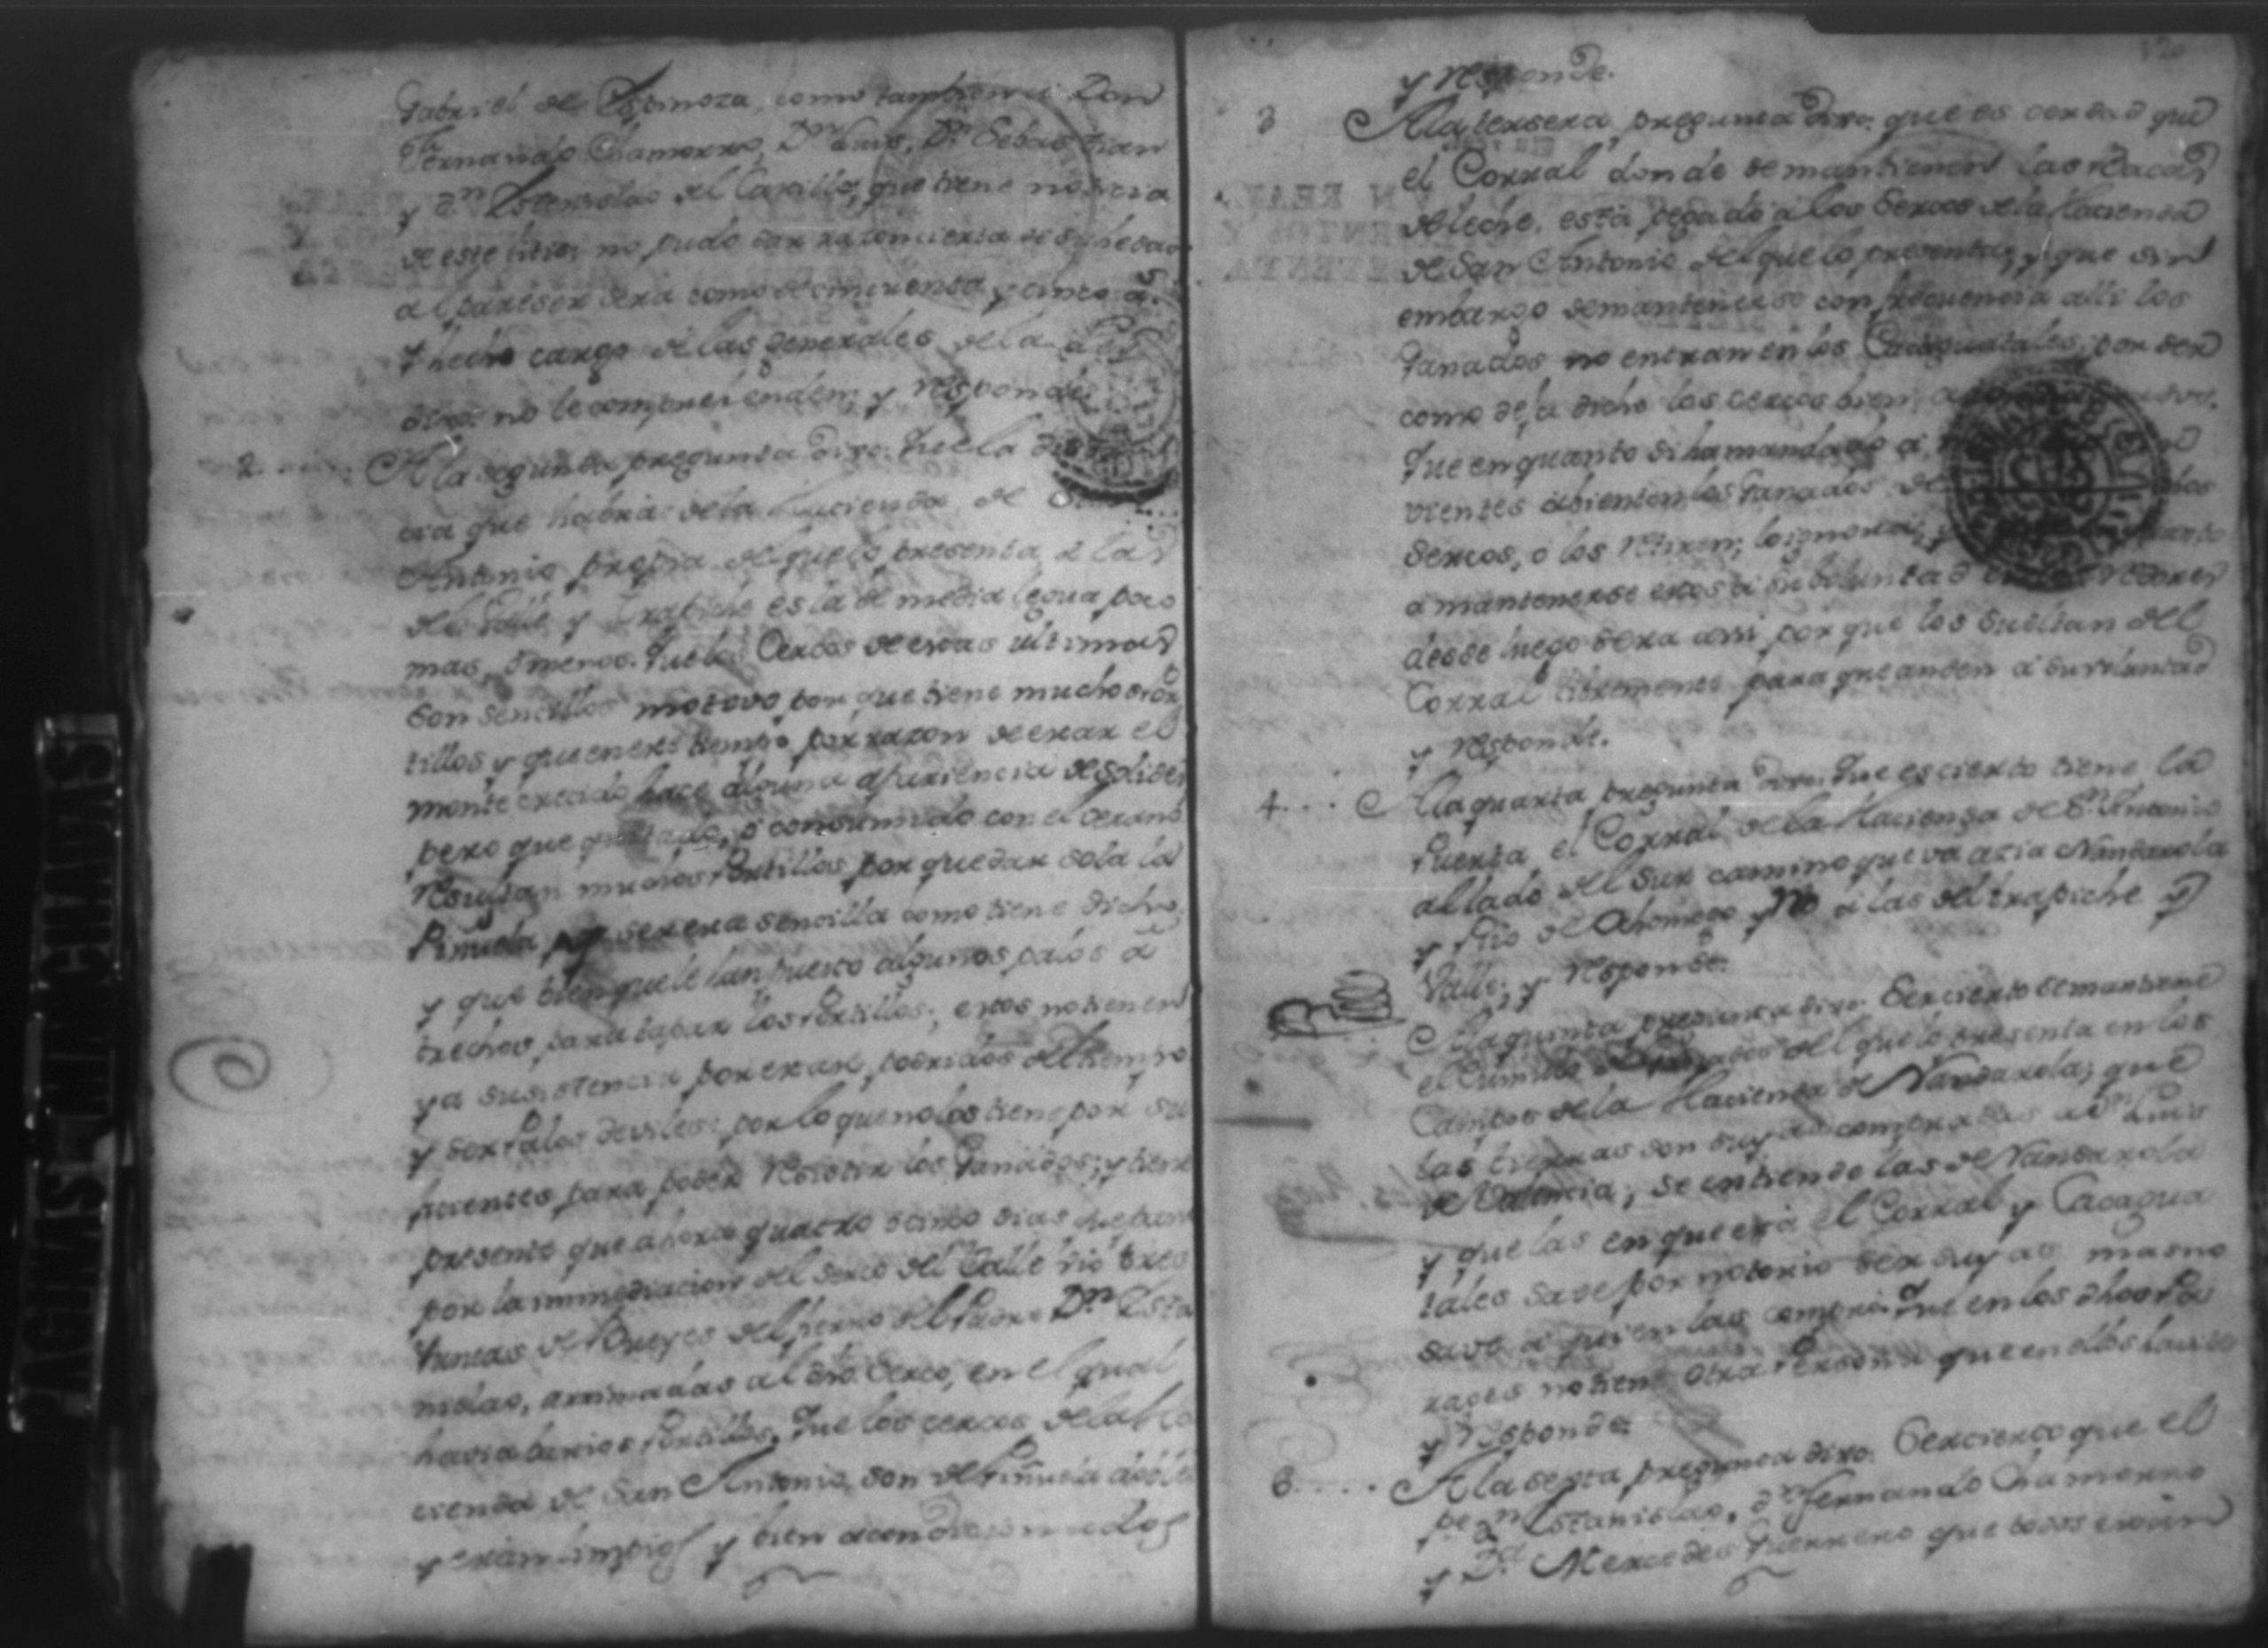 Gabriel de Espinoza, como tambien a Don
Fernando Chamorro, Dn Luis, Dn Sebastian
y Dn Estanislao del Castillo, que tiene noticia
de este litis; no pudo dar razon cierta de su hedad
al pareser sera como de cinquenta y cinco as.
Y hecho cargo de las generales de la Ley
dixo: no le comprehenden; y responde.
2..... A la segunda pregunta dixo: Que la distan
cia que habra de la Hacienda de San
Antonio propia del que lo presenta, a las
del Valle y Trapiche es la de media legua poco
mas, o menos. Que los Cercos de estas ultimas
son sencillos motovo por que tiene muchos Por
tillos y que en este tiempo, por razon de estar el
monte crecido hace alguna apariencia de solides
pero que quitado, o consumido con el verano
resultan muchos Portillos por quedar sola la
Piñuela por ser esta sencilla como tiene dicho,
y que bien que le han puesto algunos palos a
trechos para tapar los Portillos; estos no tienen
ya susistencia por estar podridos del tiempo
y ser Palos deviles: por lo que no los tiene por su
ficientes para poder resistir los Ganados; y tiene
presente que ahora quatro o cinco dias que pasó
por la inmediacion del serco del Valle vio tres
Yuntas de Bueyes del fierro del Padre Dn Esta
nislao, arrimadas al dho. Serco, en el qual
havia barios Portillos. Que los cercos de la Ha
cienda de San Antonio son de Piñuela doble
y estan limpios y bien acondicionados
y responde.
3 A la tersera pregunta dixo: que es verdad que
el Corral donde se mantienen las Bacas
de leche, está pegado a los Sercos de la Hacienda
de San Antonio del que lo presenta; y que sin
embargo de mantenerse con frequencia alli los
Ganados no entran en los Cacaguatales, por ser
como deja dicho los cercos bien
Que en quanto si ha mandado a
vientes abienten los Ganados de los
Sercos, o los retiren; lo ignora; y
a mantenerse estos a su boluntad
desde luego sera assi por que los sueltan del
Corral libremente para que anden a su voluntad
y responde.
4.... A la quarta pregunta dixo: Que es cierto tiene la
Puerta, el Corral de la Hacienda de Sn Antonio
al lado del Sur camino que va acia Nandarola
y Rio de Ahomogo y No a las del trapiche y
Valle; y responde.
A la quinta pregunta dixo: Ser cierto se mantiene
el Cumulo de Ganados del que lo presenta en los
Campos de la Hacienda de Nandarola; que
las tierras son suyas compradas a Dn Luis
de Valencia; se entiende las de Nandarola
y que las en que está el Corral y Cacagua
tales save por notorio ser suyas, mas no
save a quien las compró. Que en los dhos Pa
rages no tiene otra Persona que en ellos havite
y responde.
6..... A la sexta pregunta dixo: Ser cierto que el
pe. Dn Estanislao, Dn Fernando Chamorro
y Da Mercedes Guerrero que todos estan
PAGINAS MANCHADAS